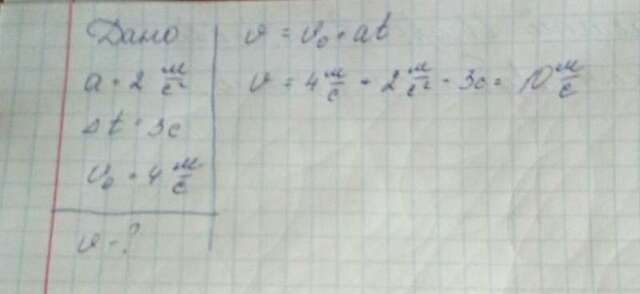 Дано
a = 2 м/с²
Δt = 3с
v₀ = 4 м/с
v - ?
v = v₀ + at
v = 4 м/с + 2 м/с² · 3с = 10 м/с